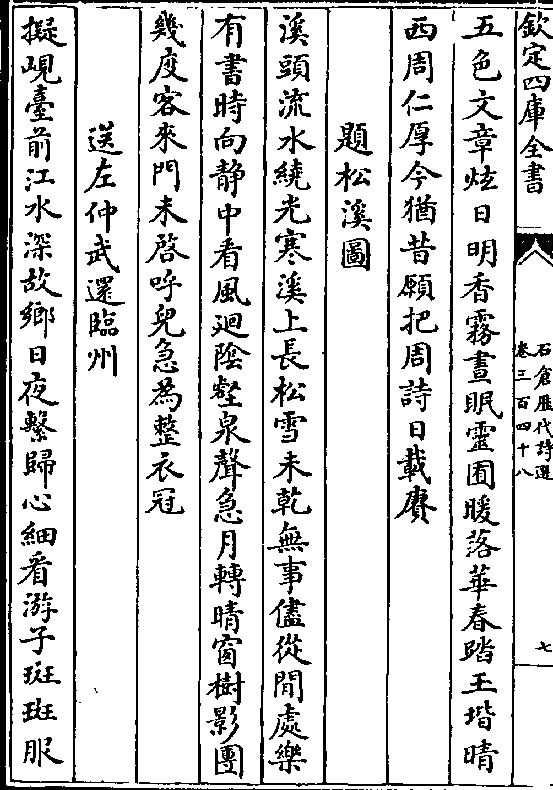 欽定四庫全書
石倉歷代詩選
卷三百四十八
七
五色文章炫日明香霧晝眠靈囿暖落華春踏玉堦晴
西周仁厚今猶昔願把周詩日載賡
題松溪圖
溪頭流水繞光寒溪上長松雪未乾無事儘從閒處樂
有書時向静中看風廻陰壑泉聲急月轉晴窗樹影團
幾度客來門未啓呼兒急為整衣冠
送左仲武還臨州
擬峴臺前江水深故鄉日夜繫歸心細看游子斑斑服